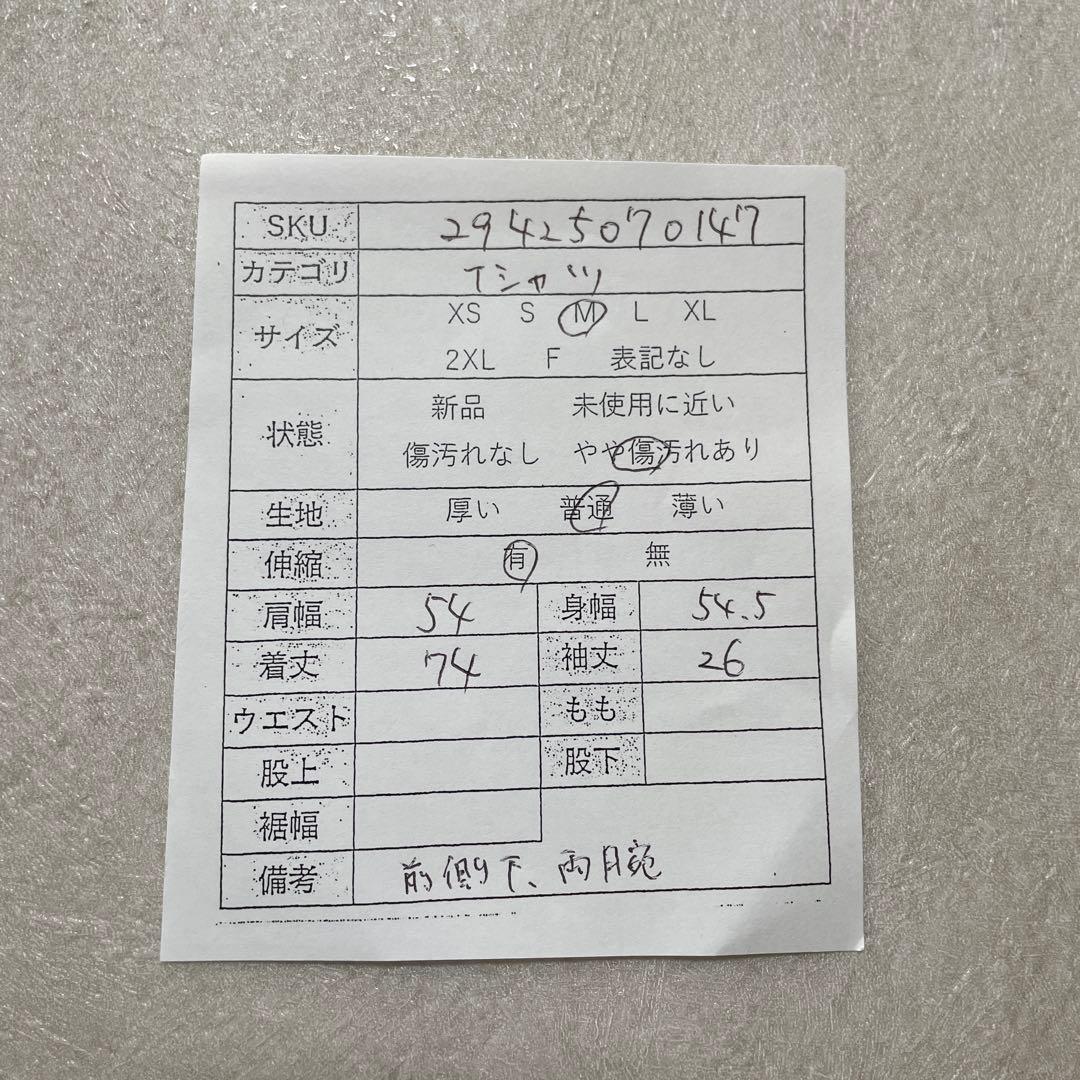 SKU 29425070147
カテゴリ Tシャツ
サイズ XS S M L XL
2XL F 表記なし
状態 新品 未使用に近い
傷汚れなし やや傷汚れあり
生地 厚い 普通 薄い
伸縮 有 無
肩幅 54 身幅 54.5
着丈 74 袖丈 26
ウエスト もも
股上 股下
裾幅
備考 前側下、両腕